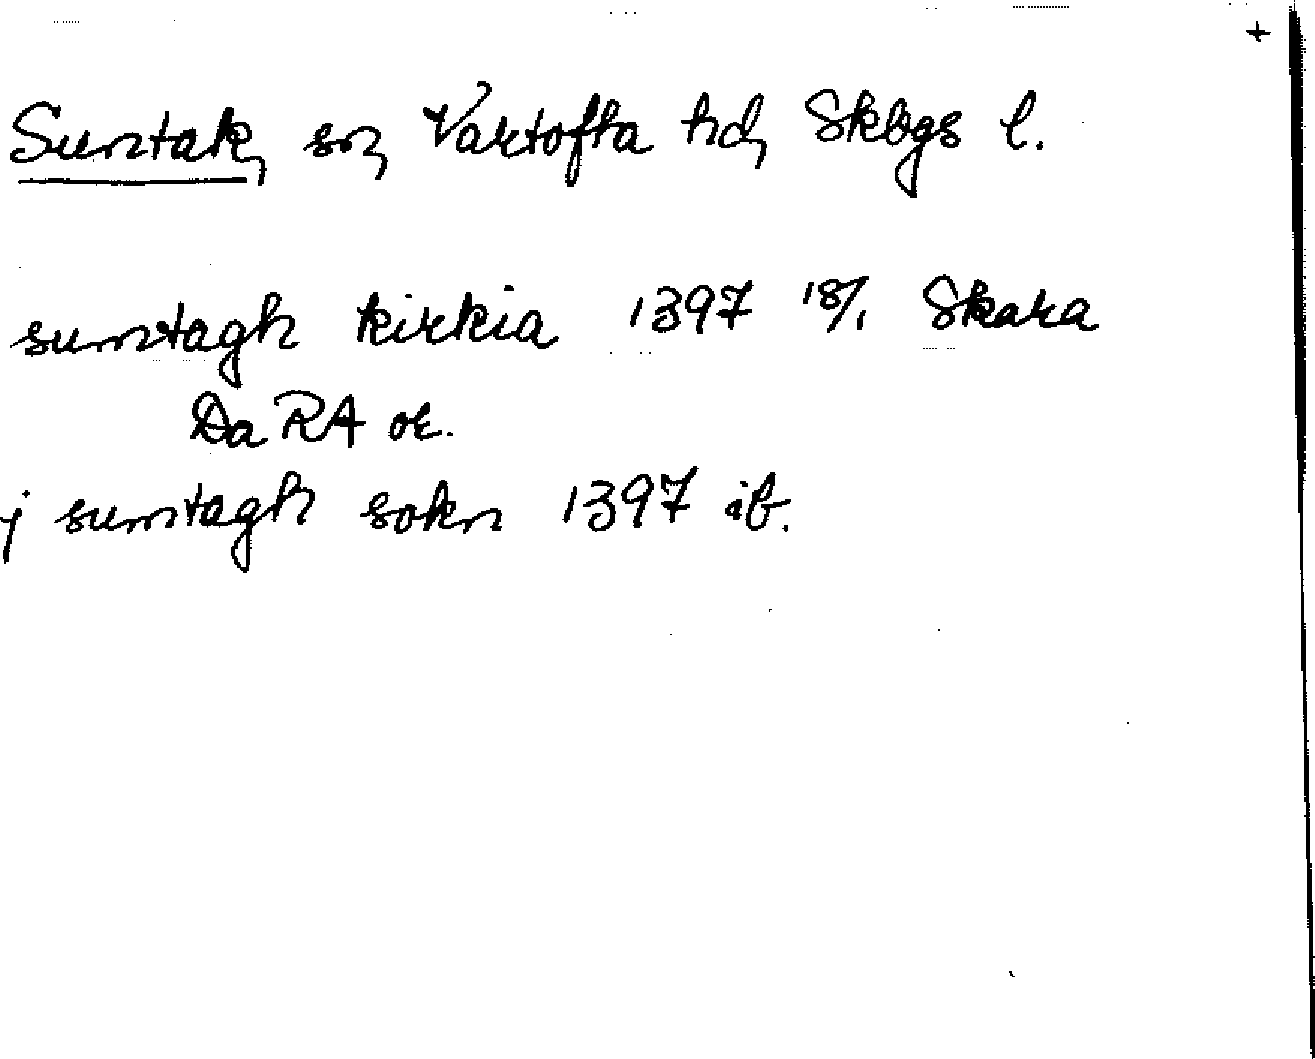 +
Suntak, sn, Vartofta hd, Skbgs l.
suntagh kirkia 1397 18/1 Skara
Da RA or.
j suntagh sokn 1397 ib.